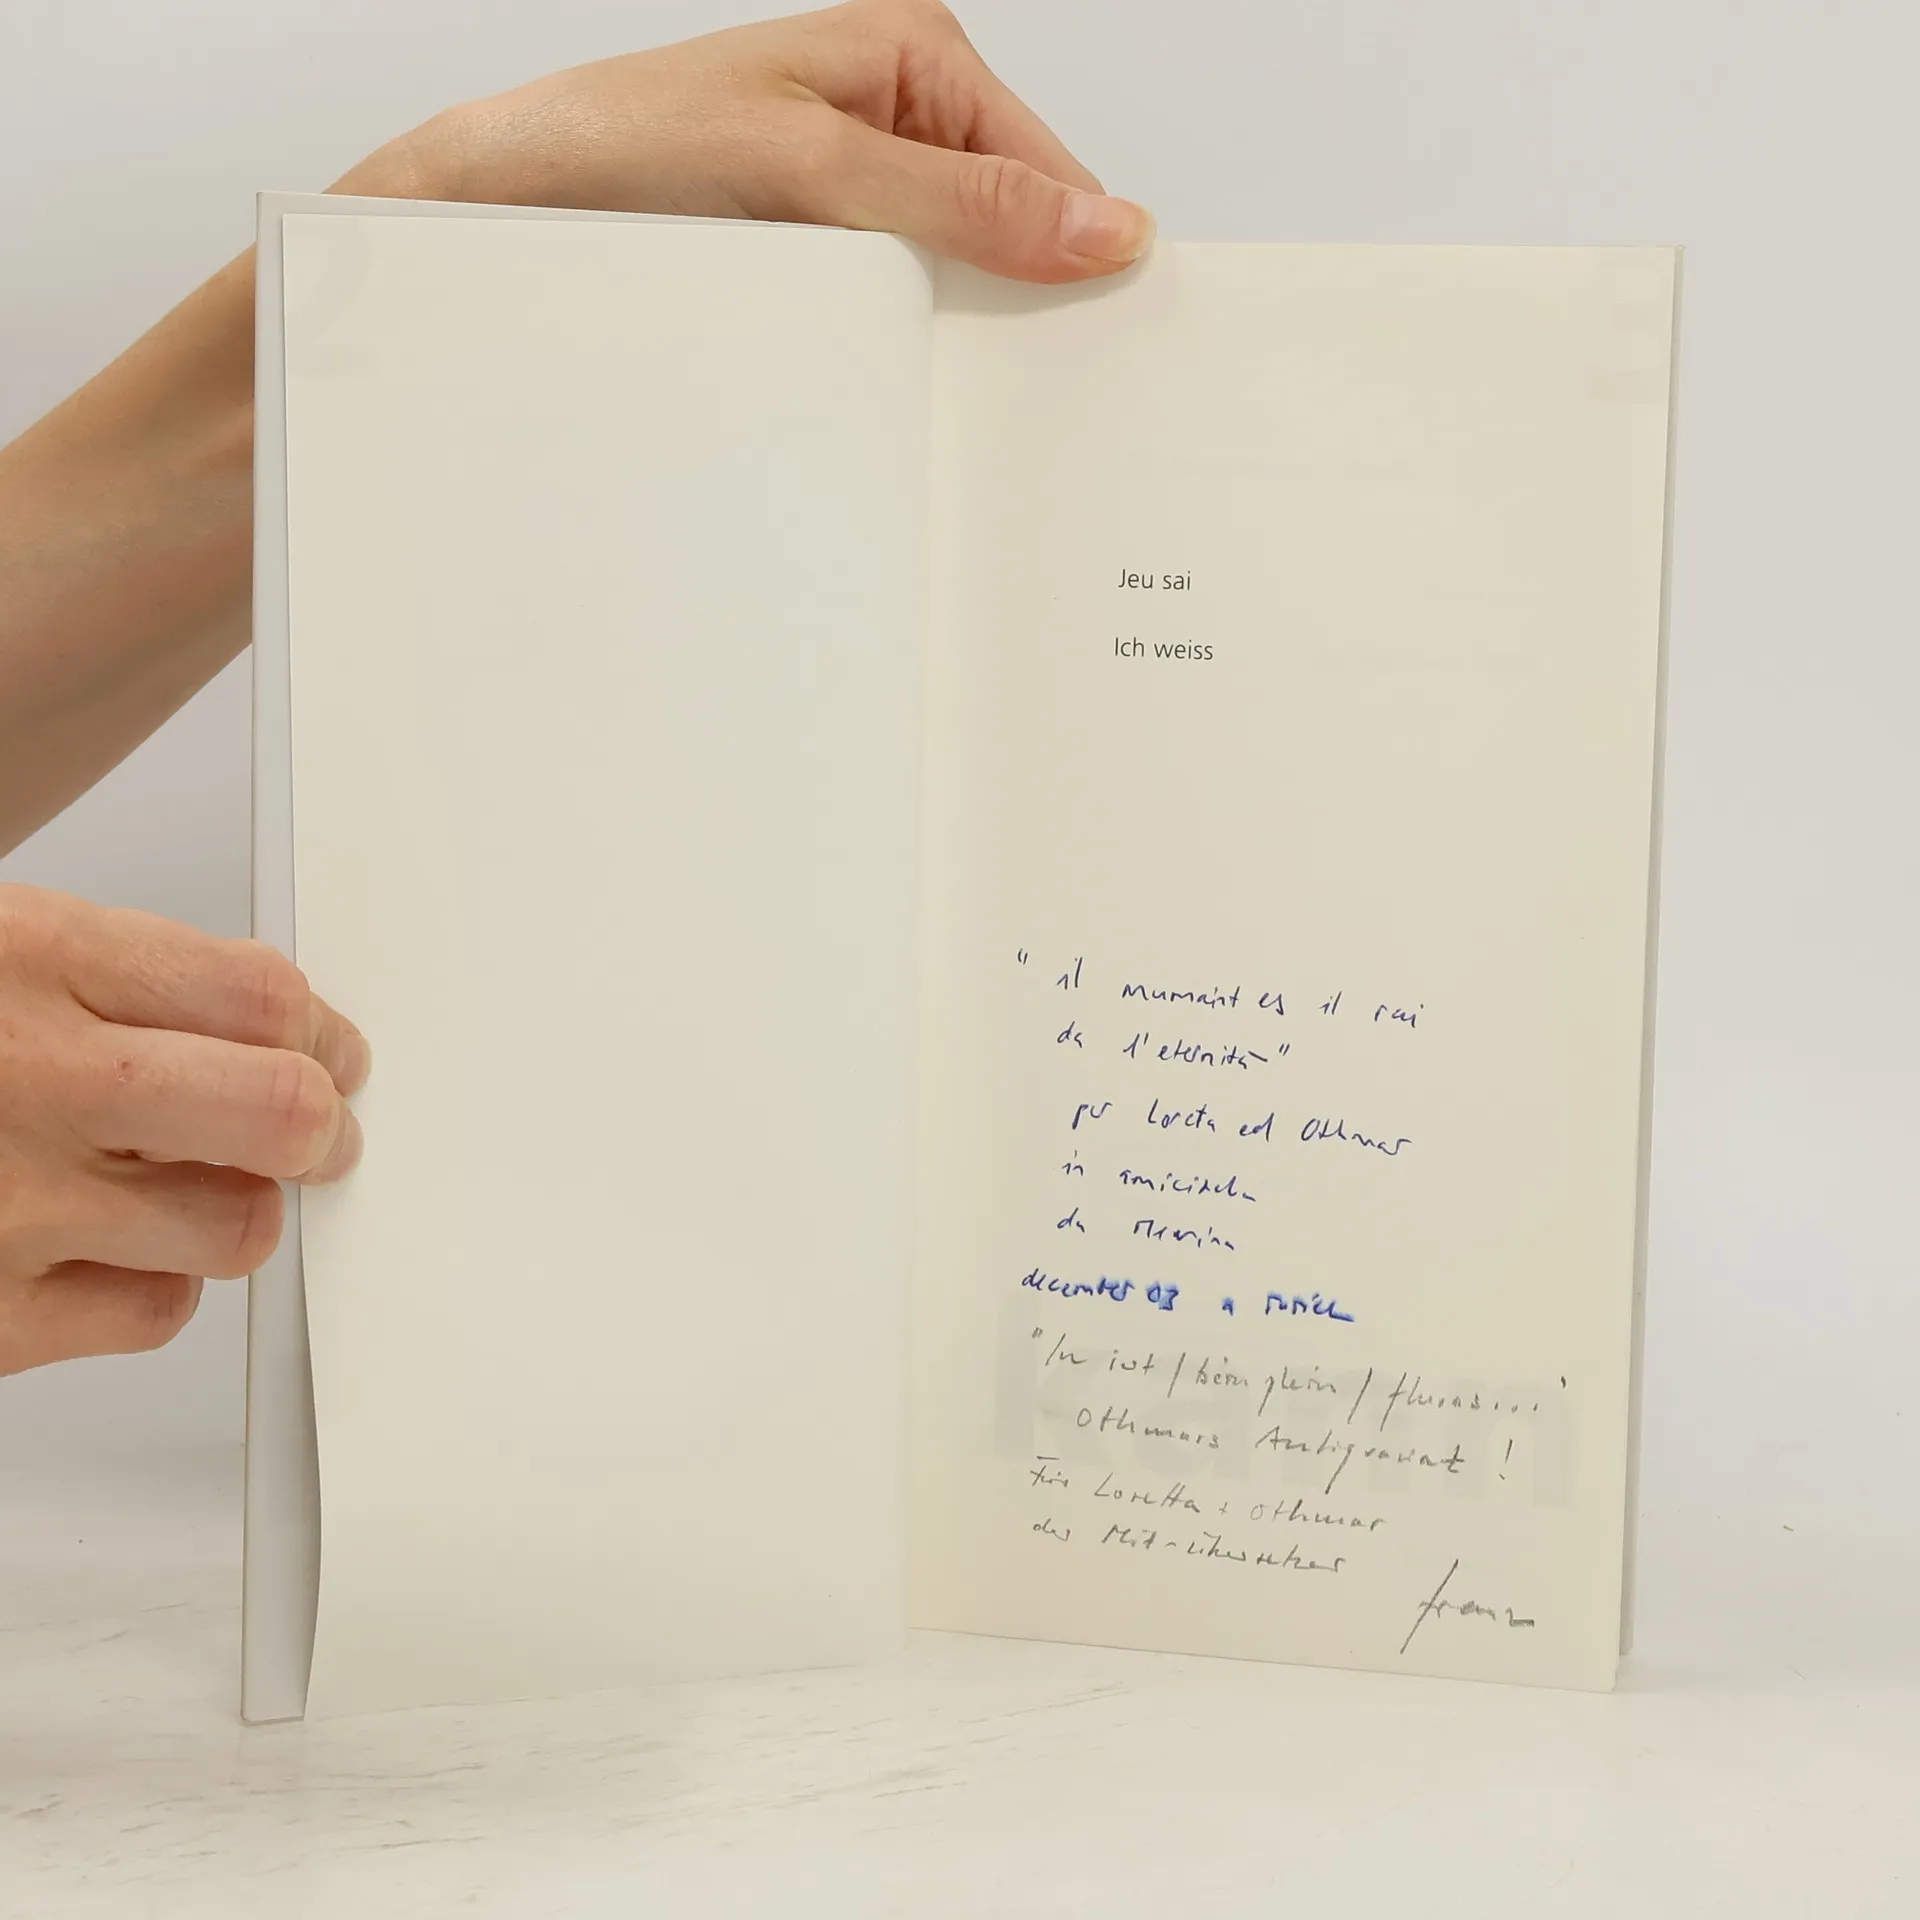 Jeu sai
Ich weiss
" il mumaint es il rai
da l'eternità "
per Loreta ed Othmar
in amicizcla
da
december 03 a turich
"In ist /
Othmars Antiquariat !
Für Loretta + Othmar
der Mit-übersetzer
franz